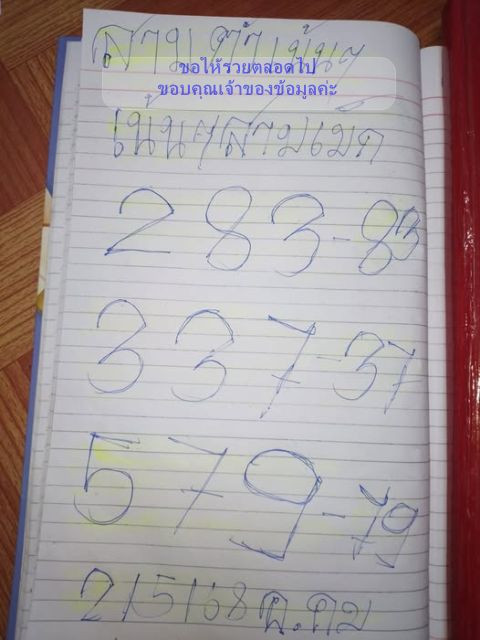 สามตัวเน้นๆ
ขอให้รวยตลอดไป
ขอบคุณเจ้าของข้อมูลค่ะ
เน้นๆสามเม็ด
283-83
337-37
579-79
2/5/68